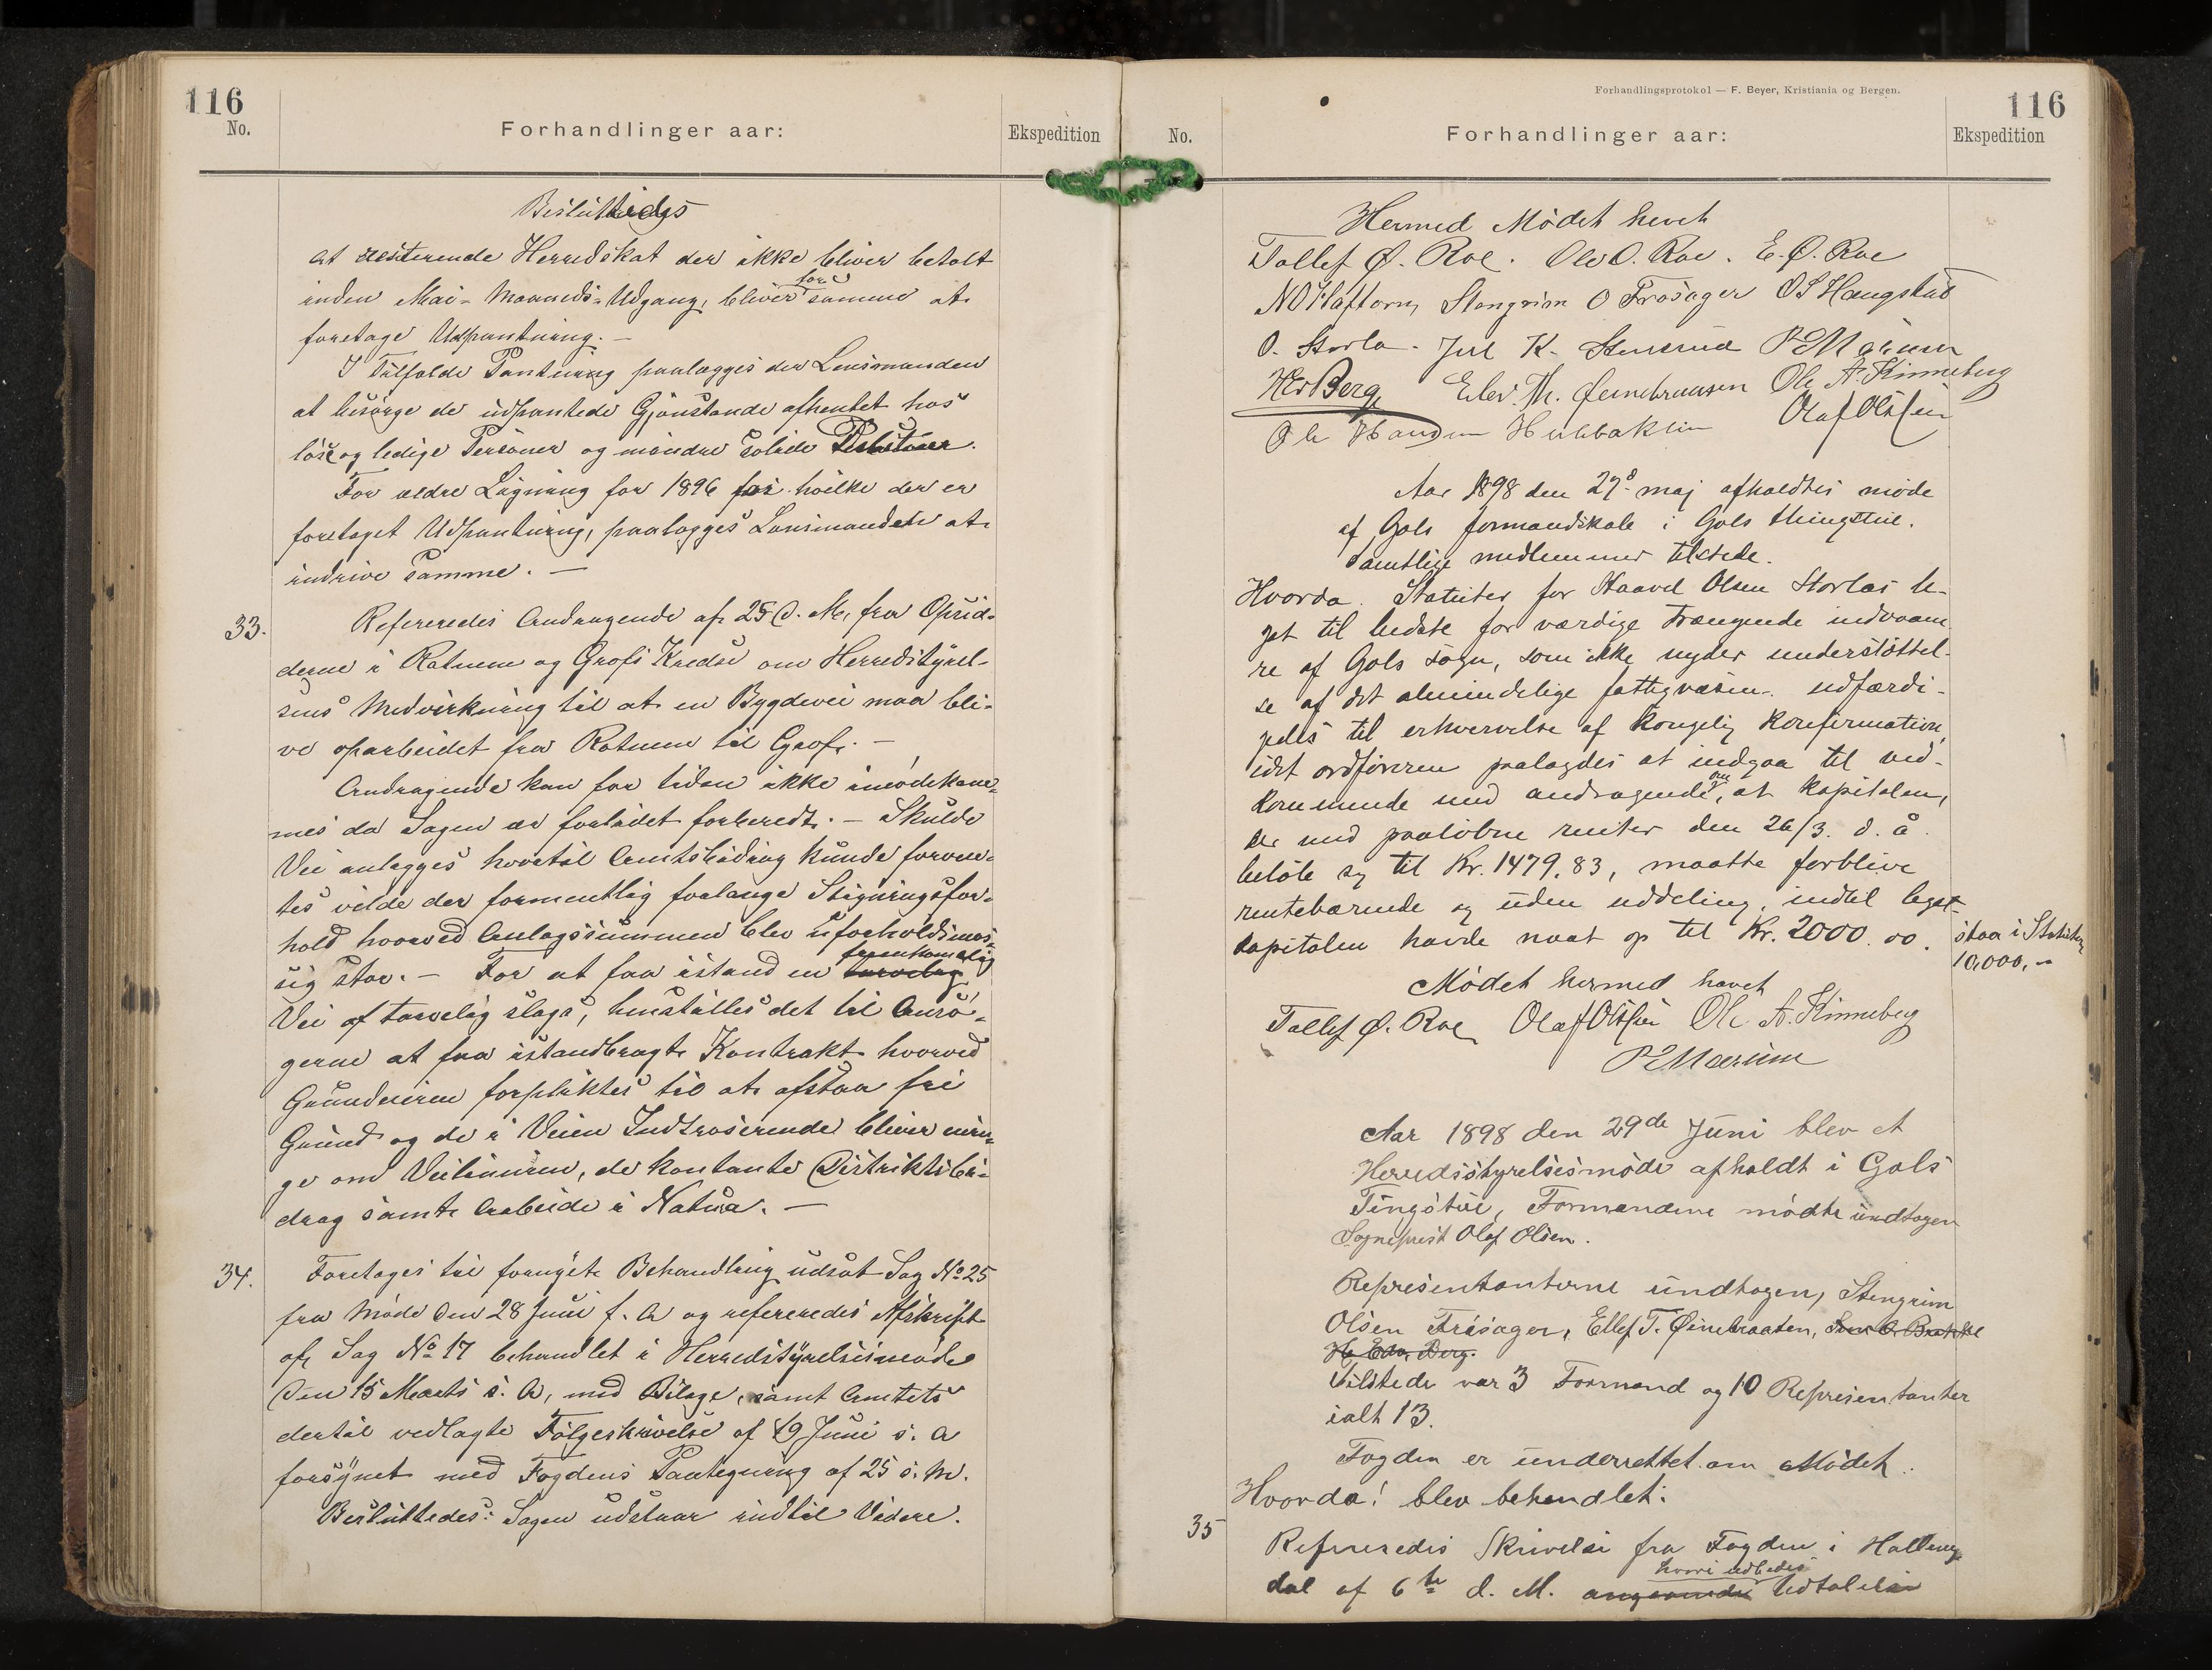 116
No.
Forhandlinger aar:
Ekspedition
Besluttedes
at resterende Herredskat der ikke bliver betalt
inden Mai-Maaneds-Udgang, bliver for samme at
foretage Udpantning. —
I Tilfælde Pantning paalægges der Lensmanden
at besørge de udpantede Gjenstande afhentet hos
løse og ledige Personer og mindre solide Debitorer.
For ældre Ligning for 1896 for hvilke der er
foretaget Udpantning, paalægges Lensmanden at
inddrive samme. —
33.
Refereredes Andragende af 25 d. M. fra Opsid-
derne i Rotneim og Grøfs Kreds om Herredstyrel-
sens Medvirkning til at en Bygdevei maa bli-
ve oparbeidet fra Rotneim til Grøf. —
Andragende kan for tiden ikke imødekom-
mes da Sagen er forlidet forberedt. — Skulde
Vei anlægges hvortil Amtsbidrag kunde forven-
tes vilde der formentlig forlange Stigningsfor-
hold hvorved Anlægssummen blev uforholdsmæs-
sig stor. — For at faa istand en fremkommelig
Vei af tarvelig slags, henstilles det til Ansø-
gerne at faa istandbragt Kontrakt hvorved
Grundeieren forpliktes til at afstaa fri
Grund og de i Veien Indtræserende bliver eini-
ge om Veilinien, de kontante Distriktsbi-
drag samt Arbeide i Natura. —
34.
Foretages til fornyet Behandling udsat Sag No 25
fra Møde den 28 Juni f. A og refereredes Afskrift
af Sag No 17 behandlet i Herredstyrelsesmøde
den 15 Marts s. A, med Bilage, samt Amtets
dertil vedlagte Følgeskrivelse af 19 Juni s. A
forsynet med Fogdens Paategning af 25 s. M.
Besluttedes: Sagen udstaar indtil Videre.
Forhandlingsprotokol — F. Beyer, Kristiania og Bergen.
116
No.
Forhandlinger aar:
Ekspedition
Hermed Mødet hevet
Tollef Ø. Roe. Ole O. Roe. E. Ø. Roe
Stengrim O Frøsager O S Haugstad
O. Storla. Juel K. Stensrud P E Mærum
HEd Berg, Elev. Th. Ole A. Kinneberg
Ole Olaf Olssen
Aar 1898 den 27de maj afholdtes møde
af Gols formandskab i Gols thingstue.
Samtlige medlemmer tilstede.
Hvorda. Statuter for Haavel Olsen Storlas le-
gat til bedste for værdige trængende indvaane
re af Gols sogn, som ikke nyder understøttel-
se af det almindelige fattigvæsen udfærdi-
gedes til erhvervelse af kongelig konfirmation,
idet ordføreren paalagdes at indgaa til ved-
kommende med andragende om, at kapitalen,
der med paaløbne renter den 26/3. d. å.
beløb sig til Kr. 1479.83, maatte forblive
rentebærende og uden uddeling, indtil legat-
kapitalen havde naat op til Kr. 2000.00.
staa i Statuten
10,000,-
Mødet hermed hævet
Tollef Ø. Roe Olaf Olssen Ole A. Kinneberg
P E Mærum
Aar 1898 den 29de Juni blev et
Herredsstyrelsesmøde afholdt i Gols
Tingstue, Formændene mødte undtagen
Sogneprest Olaf Olsen.
Representanterne undtagen, Stengrim
Olsen Frøsager, Ellef T. Øinebraaten,
H. Edv. Berg.
Tilstede var 3 Formænd og 10 Representanter
ialt 13.
Fogden er underrettet om Mødet.
Hvorda! blev behandlet:
35
Refereredes Skrivelse fra Fogden i Halling-
dal af 6te d. M. angaaende hvori udbedes Udtalelse